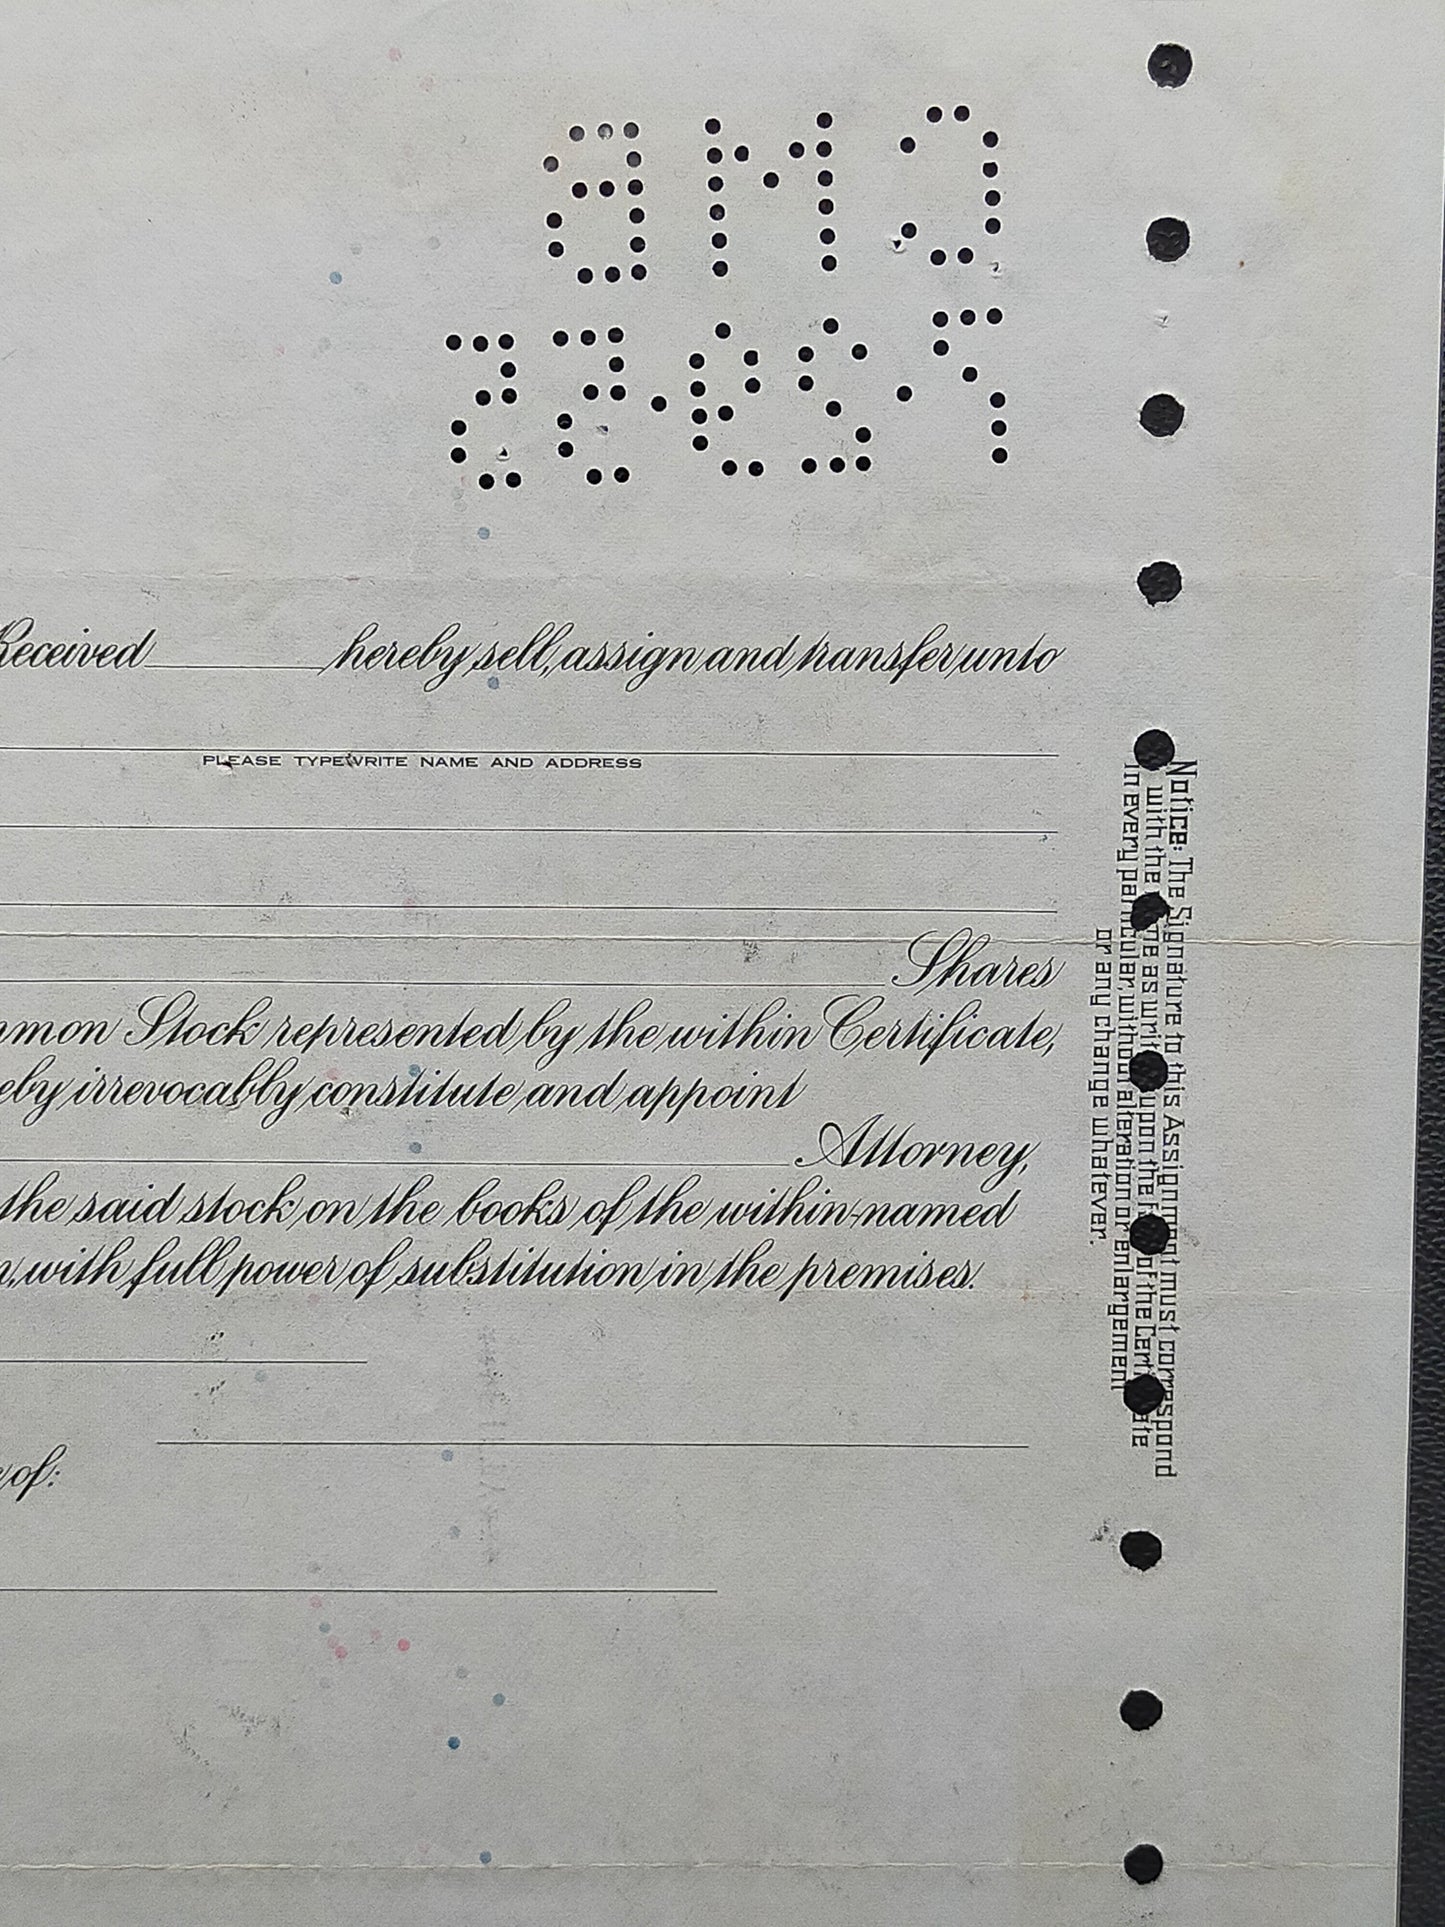 CMB
7.29.55
Received hereby sell, assign and transfer unto
PLEASE TYPEWRITE NAME AND ADDRESS
Shares
mmon Stock represented by the within Certificate,
eby irrevocably constitute and appoint
Attorney,
the said stock on the books of the within-named
n, with full power of substitution in the premises.
of:
Notice: The Signature to this Assignment must correspond
with the name as written upon the face of the Certificate
in every particular, without alteration or enlargement
or any change whatever.